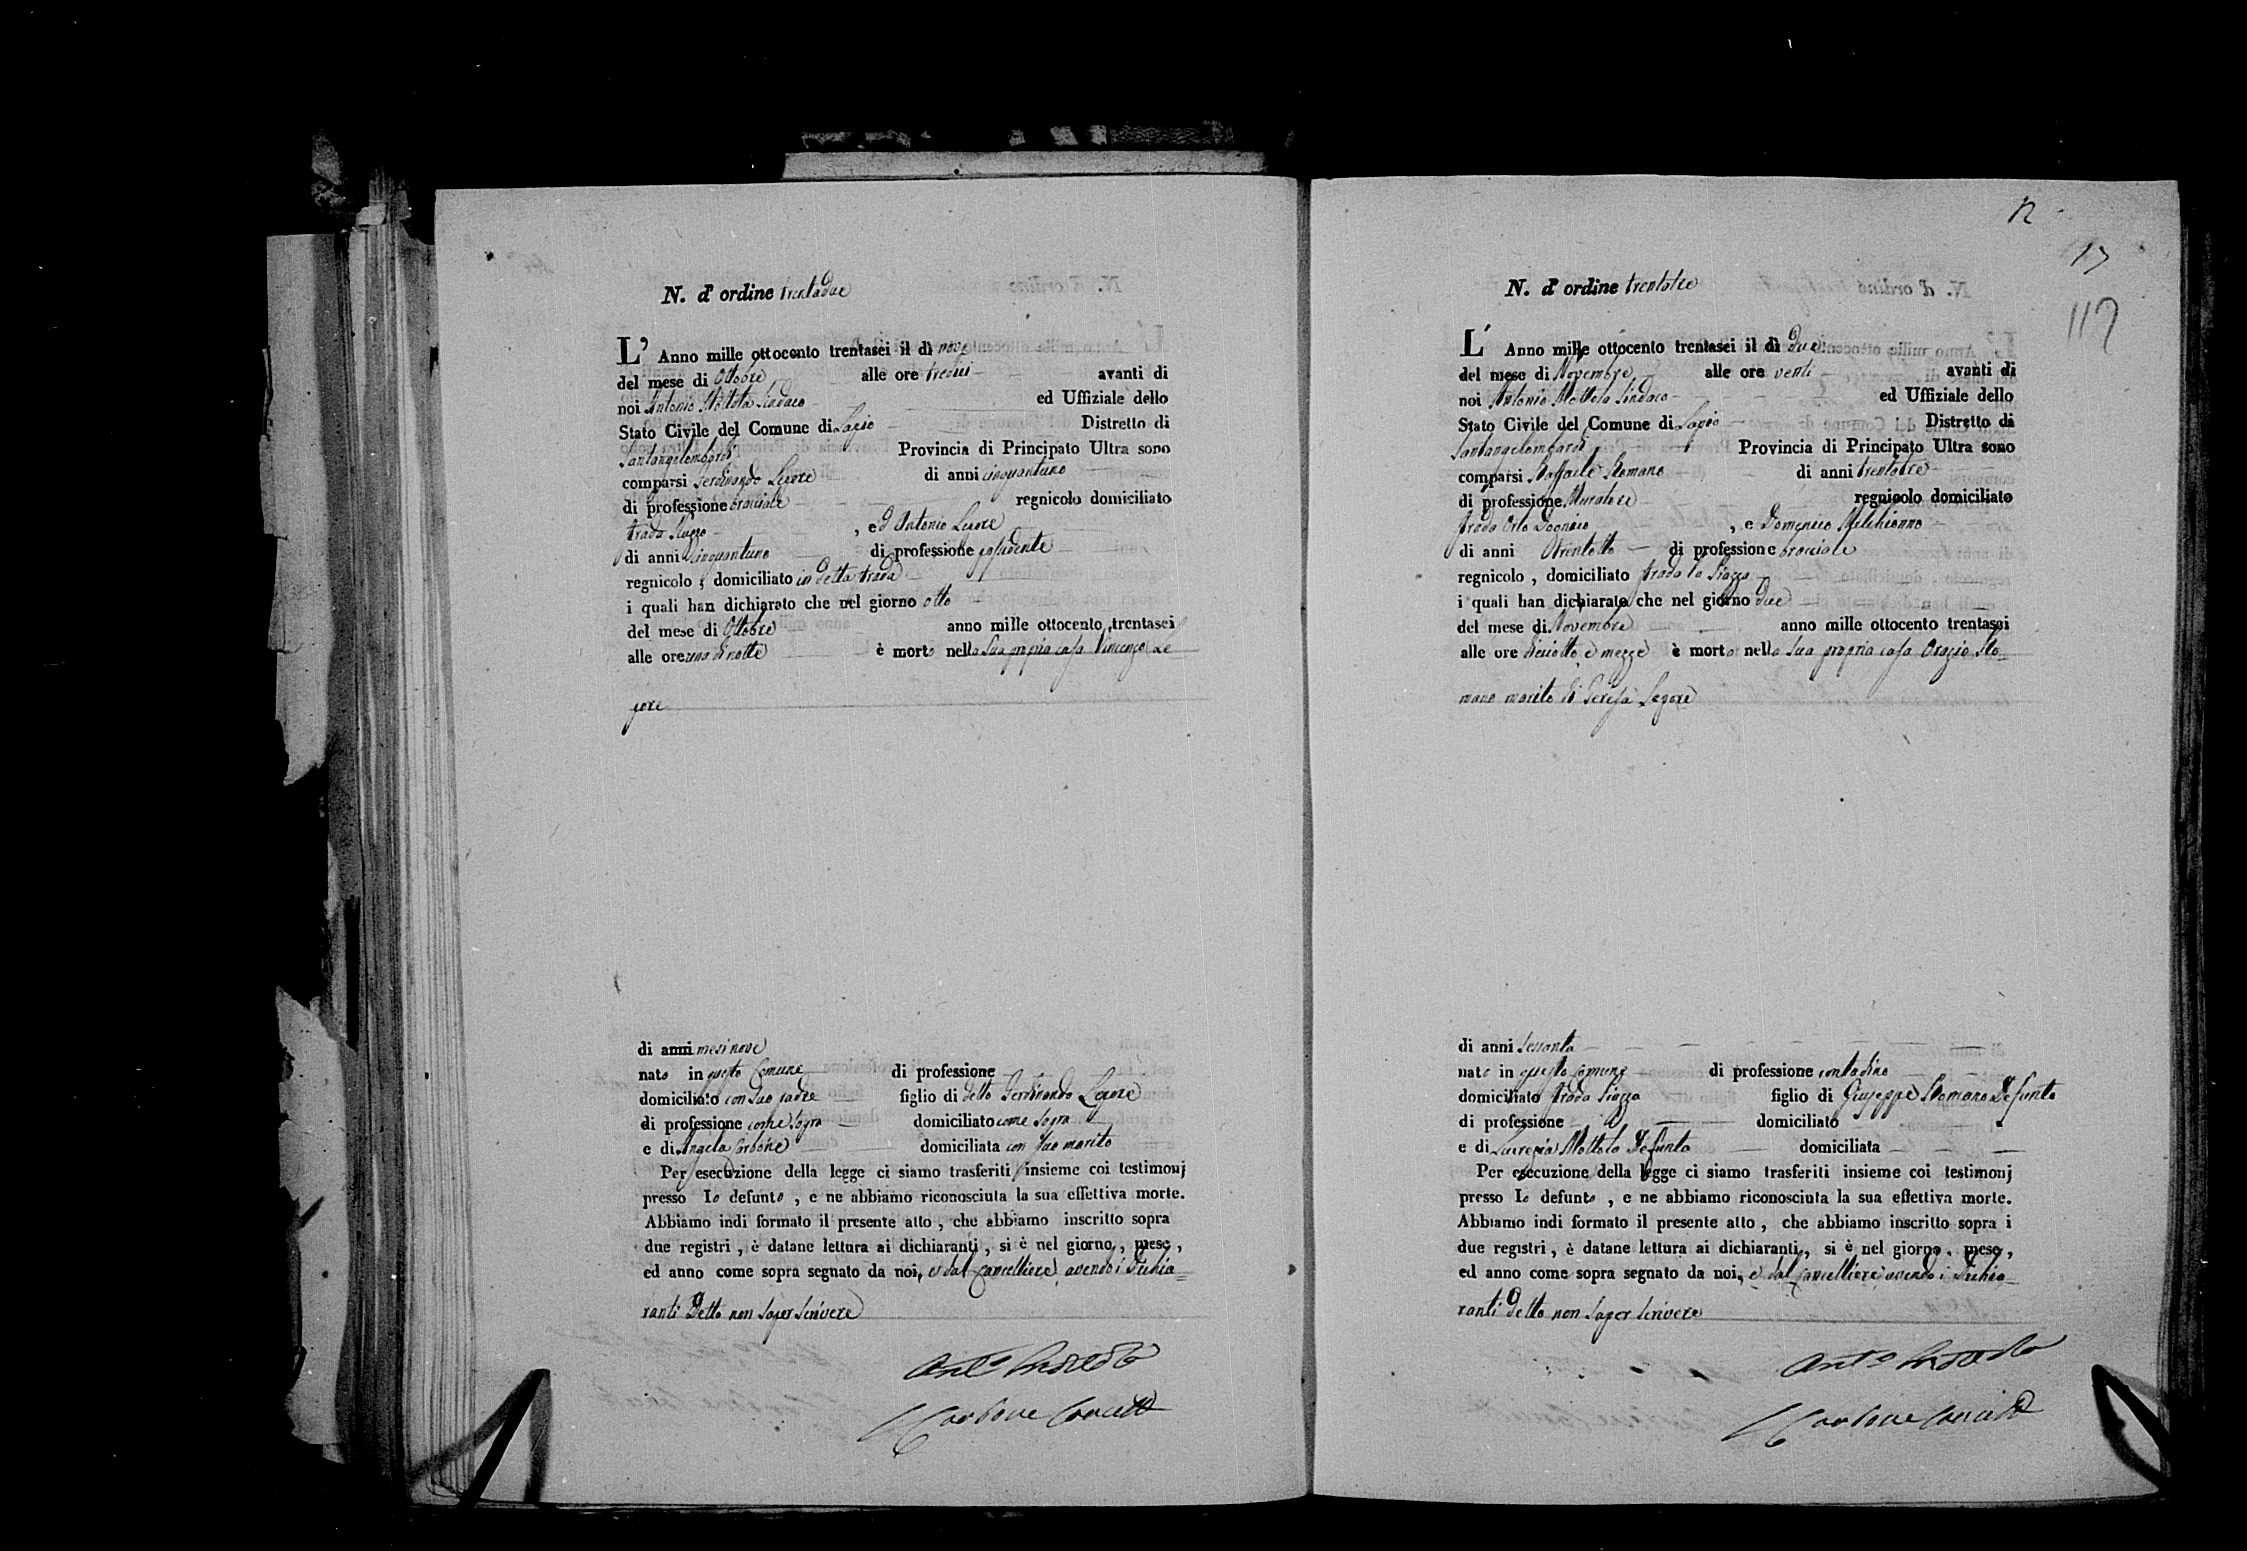 N. d' ordine trentadue
L' Anno mille ottocento trentasei il dì nove
del mese di Ottobre alle ore tredici avanti di
noi Antonio Mottola Sindaco ed Uffiziale dello
Stato Civile del Comune di Lapio Distretto di
Santangelolombardi Provincia di Principato Ultra sono
comparsi Ferdinando Lepore di anni cinquantuno
di professione bracciale regnicolo domiciliato
strada , ed Antonio Lepore
di anni cinquantuno di professione possidente
regnicolo , domiciliato in detta strada
i quali han dichiarato che nel giorno otto
del mese di Ottobre anno mille ottocento trentasei
alle ore una di notte è morto nella sua propria casa Vincenzo Le
pore
di anni mesi nove
nato in questo Comune di professione
domiciliato con suo padre figlio di detto Ferdinando Lepore
di professione come sopra domiciliato come sopra
e di Angela Carbone domiciliata con suo marito
Per esecuzione della legge ci siamo trasferiti insieme coi testimonj
presso lo defunto , e ne abbiamo riconosciuta la sua effettiva morte.
Abbiamo indi formato il presente atto , che abbiamo inscritto sopra
due registri , è datane lettura ai dichiaranti , si è nel giorno , mese ,
ed anno come sopra segnato da noi, e dal Cancelliere avendo i dichia=
ranti detto non saper scrivere
Ant.o Mottola
Carbone Canc.
12
13
117
N. d' ordine trentatre
L' Anno mille ottocento trentasei il dì due
del mese di Novembre alle ore venti avanti di
noi Antonio Mottola Sindaco ed Uffiziale dello
Stato Civile del Comune di Lapio Distretto di
Santangelolombardi Provincia di Principato Ultra sono
comparsi Raffaele Romano di anni trentatre
di professione Muratore regnicolo domiciliato
strada , e Domenico Melchionno
di anni trentotto di professione bracciale
regnicolo , domiciliato strada la Piazza
i quali han dichiarato che nel giorno due
del mese di Novembre anno mille ottocento trentasei
alle ore diciotto, e mezze è morto nella sua propria casa Orazio Ro=
mano marito di Teresa Lepore
di anni sessanta
nato in questo Comune di professione contadino
domiciliato strada Piazza figlio di Giuseppe Romano defunto
di professione domiciliato
e di Lucrezia Mottola defunta domiciliata
Per esecuzione della legge ci siamo trasferiti insieme coi testimonj
presso lo defunto , e ne abbiamo riconosciuta la sua effettiva morte.
Abbiamo indi formato il presente atto , che abbiamo inscritto sopra i
due registri , è datane lettura ai dichiaranti , si è nel giorno , mese ,
ed anno come sopra segnato da noi, e dal Cancelliere avendo i dichia=
ranti detto non saper scrivere
Ant.o Mottola
Carbone Canc.